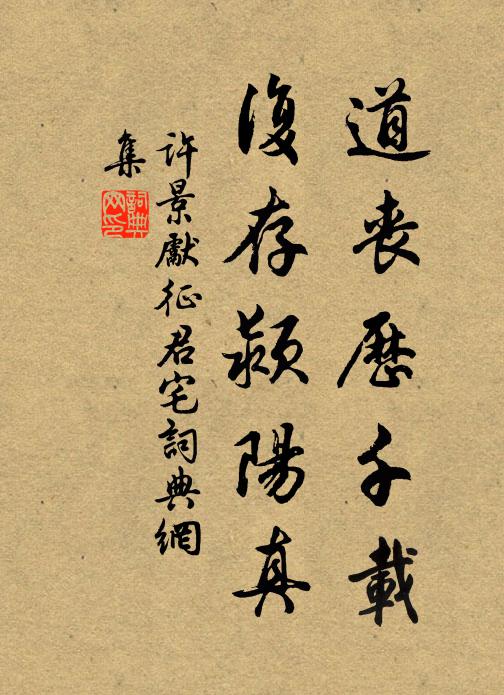 道喪歷千載
復存潁陽真
許景獻征君宅詞典網
集
詞典
网印